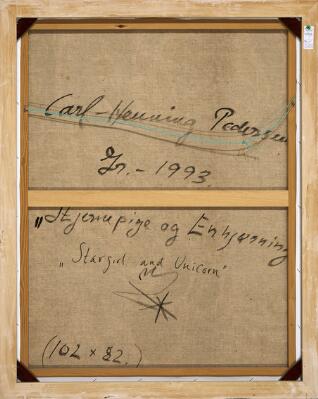 Carl-Henning Pedersen
Jr.-1993.
„Stjernepige og Enhjørning
„Stargirl and Unicorn"
(102 x 82.)